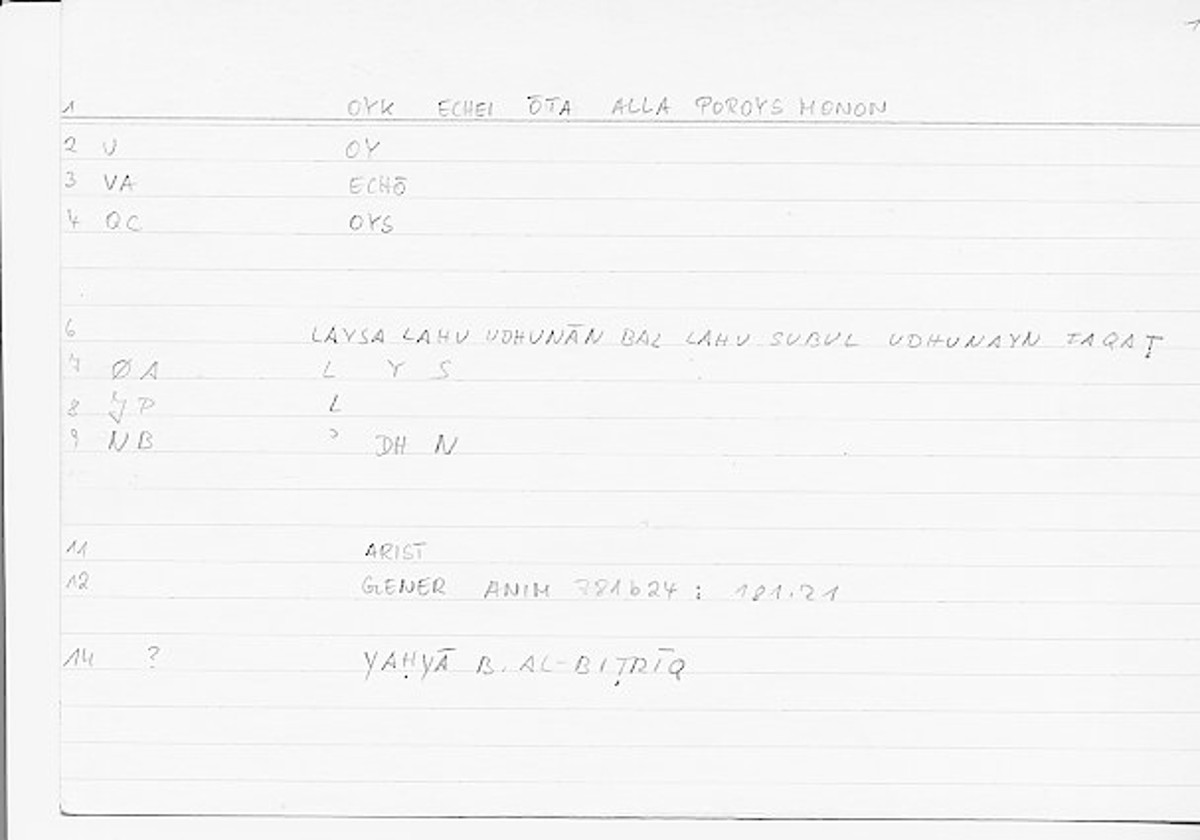 1
1 OYK ECHEI ŌTA ALLA POROYS MONON
2 U OY
3 VA ECHŌ
4 QC OYS
6 LAYSA LAHU UDHUNĀN BAL LAHU SUBUL UDHUNAYN FAQAṬ
7 ØA L Y S
8 JP L
9 NB ʾ DH N
11 ARIST
12 GENER ANIM 781b24 : 181.21
14 ? YAḤYĀ B. AL-BIṬRĪQ